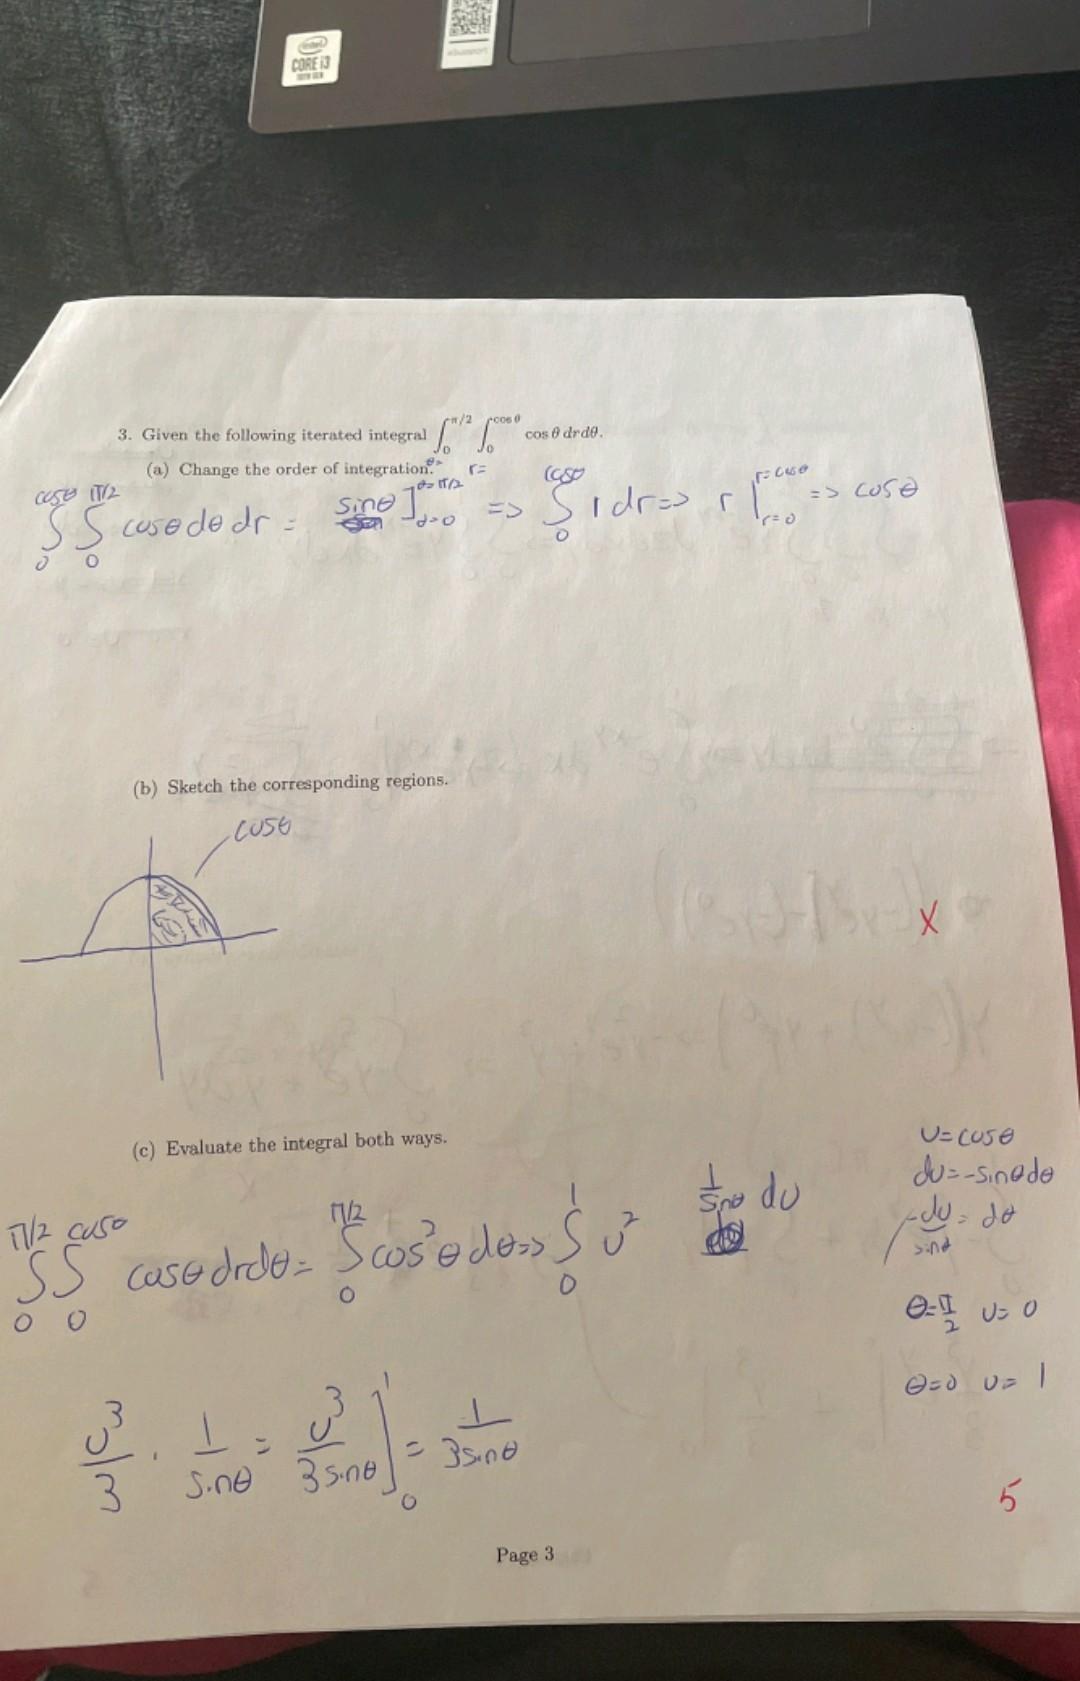 intel
CORE i3
10TH GEN
3. Given the following iterated integral ∫₀^{π/2} ∫₀^{cos θ} cos θ dr dθ.
(a) Change the order of integration.
∫₀^{cosθ} ∫₀^{π/2} cosθ dθ dr = sinθ ]_{θ=0}^{θ=π/2} => ∫₀^{cosθ} 1 dr => r |_{r=0}^{r=cosθ} => cosθ
θ= r=
(b) Sketch the corresponding regions.
cosθ
X
(c) Evaluate the integral both ways.
u = cosθ
du = -sinθ dθ
-du/sinθ = dθ
∫₀^{π/2} ∫₀^{cosθ} cosθ dr dθ = ∫₀^{π/2} cos²θ dθ => ∫₀^1 u² 1/sinθ du
θ = π/2 u = 0
θ = 0 u = 1
u³/3 · 1/sinθ = u³/3sinθ ]₀^1 = 1/3sinθ
5
Page 3